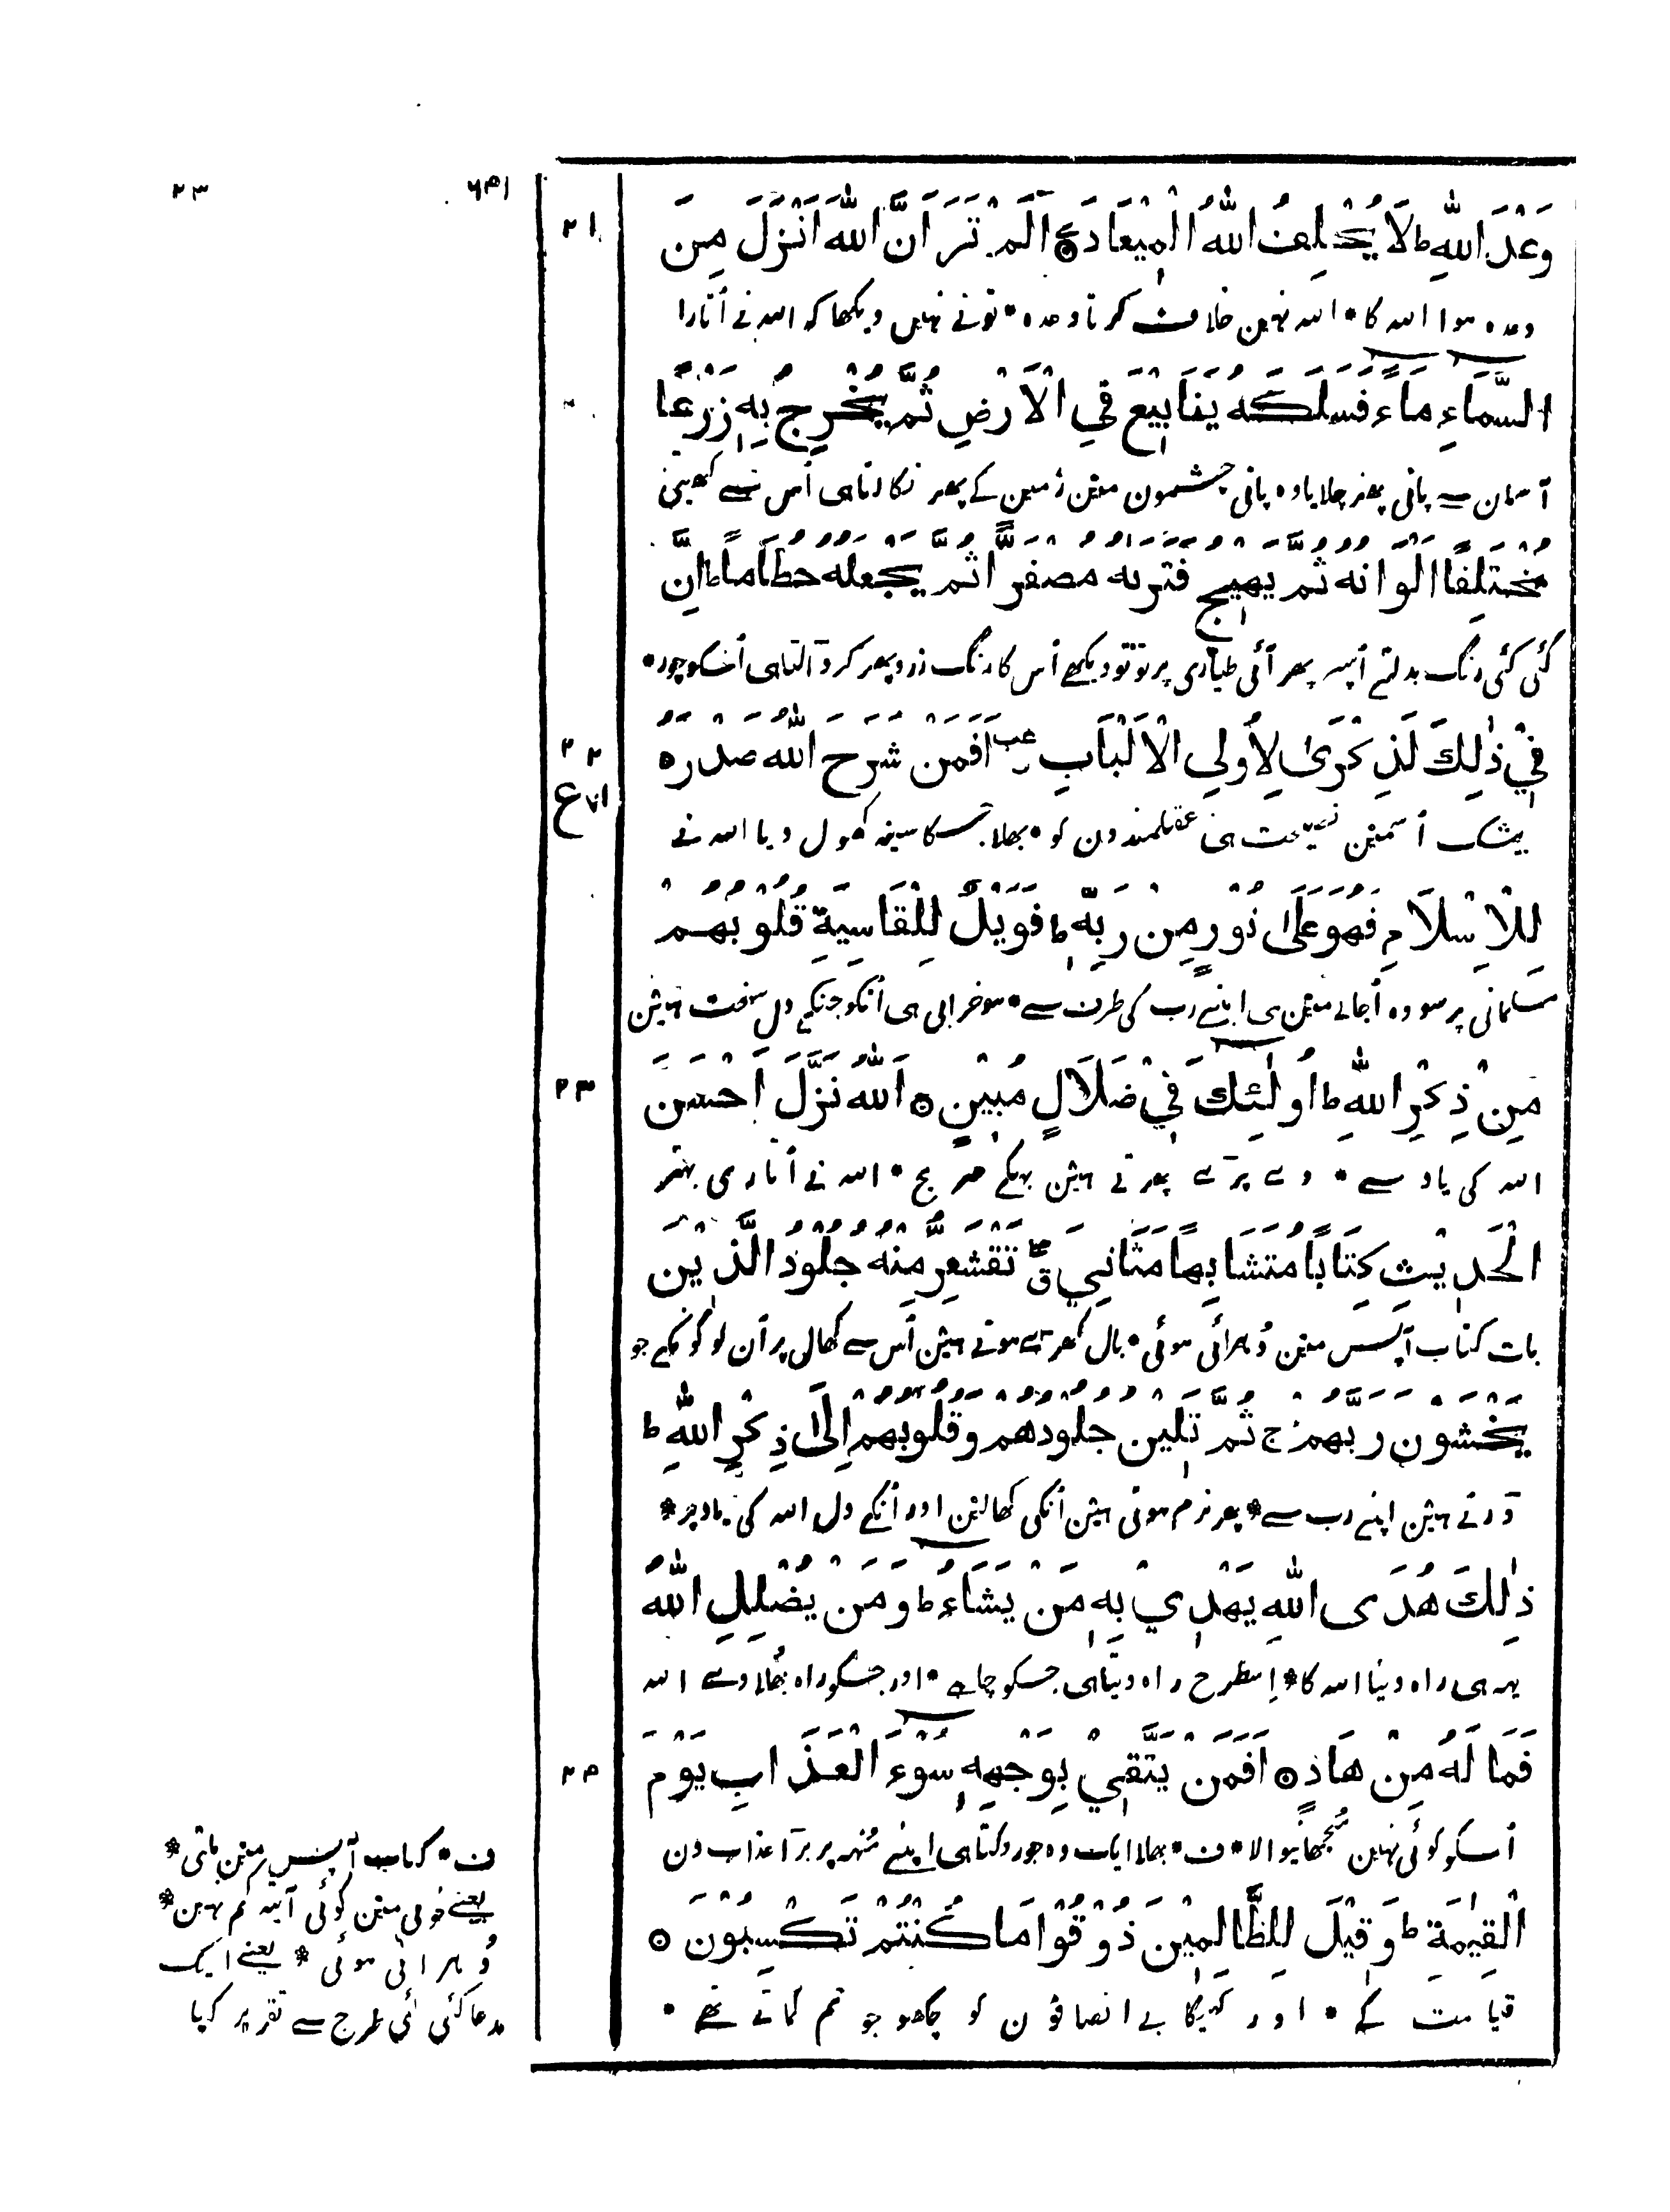 ۲۳
۶۴۱
۲۱
وَعْدَ اللّٰهِ ط لَا يُخْلِفُ اللّٰهُ الْمِيْعَادَ ۞ اَلَمْ تَرَ اَنَّ اللّٰهَ اَنْزَلَ مِنَ
وعده هوا الله كا * الله نہين خلاف كرتا وعده * تونے نہيں ديكھا كہ الله نے اُتارا
السَّمَاءِ مَاءً فَسَلَكَهُ يَنَابِيْعَ فِي الْاَرْضِ ثُمَّ يُخْرِجُ بِهٖ زَرْعًا
آسمان سے پانی پھر چلايا وه پانی چشمون مين زمين كے پھر نكالتا ہی اُس سے كھيتی
مُخْتَلِفًا اَلْوَانُهُ ثُمَّ يَهِيْجُ فَتَرٰىهُ مُصْفَرًّا ثُمَّ يَجْعَلُهُ حُطَامًا ط اِنَّ
كئی كئی رنگ بدلتے اُسپر پھر آئی طيّاری پر تو تو ديكھے اُس كا رنگ زرد پھر كر ڈالتا ہی اُسكو چور *
۲۲
فِيْ ذٰلِكَ لَذِكْرَىٰ لِاُولِي الْاَلْبَابِ ع اَفَمَنْ شَرَحَ اللّٰهُ صَدْرَهُ
ع
بيشک اُسمين نصيحت ہی عقلمندون كو * بھلا جسكا سينہ كھول ديا الله نے
لِلْاِسْلَامِ فَهُوَ عَلَىٰ نُوْرٍ مِنْ رَبِّهٖ ط فَوَيْلٌ لِلْقَاسِيَةِ قُلُوْبُهُمْ
مسلمانی پر سو وه اُجالے مين ہی اپنے رب كی طرف سے * سو خرابی ہی اُنكو جنكے دل سخت ہين
۲۳
مِنْ ذِكْرِ اللّٰهِ ط اُولٰئِكَ فِيْ ضَلَالٍ مُبِيْنٍ ۞ اَللّٰهُ نَزَّلَ اَحْسَنَ
الله كی ياد سے * وے پڑے پھرتے ہين بہكے صريح * الله نے اُتاری بہتر
الْحَدِيْثِ كِتَابًا مُتَشَابِهًا مَثَانِيَ ق تَقْشَعِرُّ مِنْهُ جُلُوْدُ الَّذِيْنَ
بات كتاب آپس مين دُہرائی ہوئی * بال كھڑے ہوتے ہين اُس سے كھال پر اُن لوگونكے جو
يَخْشَوْنَ رَبَّهُمْ ج ثُمَّ تَلِيْنُ جُلُوْدُهُمْ وَقُلُوْبُهُمْ اِلَىٰ ذِكْرِ اللّٰهِ ط
ڈرتے ہين اپنے رب سے * پھر نرم ہوتی ہين اُنكی كھالين اور اُنكے دل الله كی ياد پر *
ذٰلِكَ هُدَى اللّٰهِ يَهْدِيْ بِهٖ مَنْ يَشَاءُ ط وَمَنْ يُضْلِلِ اللّٰهُ
يہہ ہی راه دينا الله كا * اِسطرح راه ديتا ہی جسكو چاہے * اور جسكو راه بھُلاوے الله
۲۴
فَمَا لَهُ مِنْ هَادٍ ۞ اَفَمَنْ يَتَّقِيْ بِوَجْهِهٖ سُوْءَ الْعَذَابِ يَوْمَ
اُسكو كوئی نہين سُجھانيوالا * ف * بھلا ايک وه جو روكتا ہی اپنے مُنہہ پر بُرا عذاب دن
الْقِيٰمَةِ ط وَقِيْلَ لِلظَّالِمِيْنَ ذُوْقُوْا مَا كُنْتُمْ تَكْسِبُوْنَ ۞
قيامت كے * اور كہيگا بے انصافون كو چكھو جو تم كماتے تھے *
ف * كتاب آپس مين ملتی *
يعنے خوبی مين كوئی آيہ كم نہين *
دُہرائی ہوئی * يعنے ايک
مدعا كئی كئی طرح سے تقرير كيا